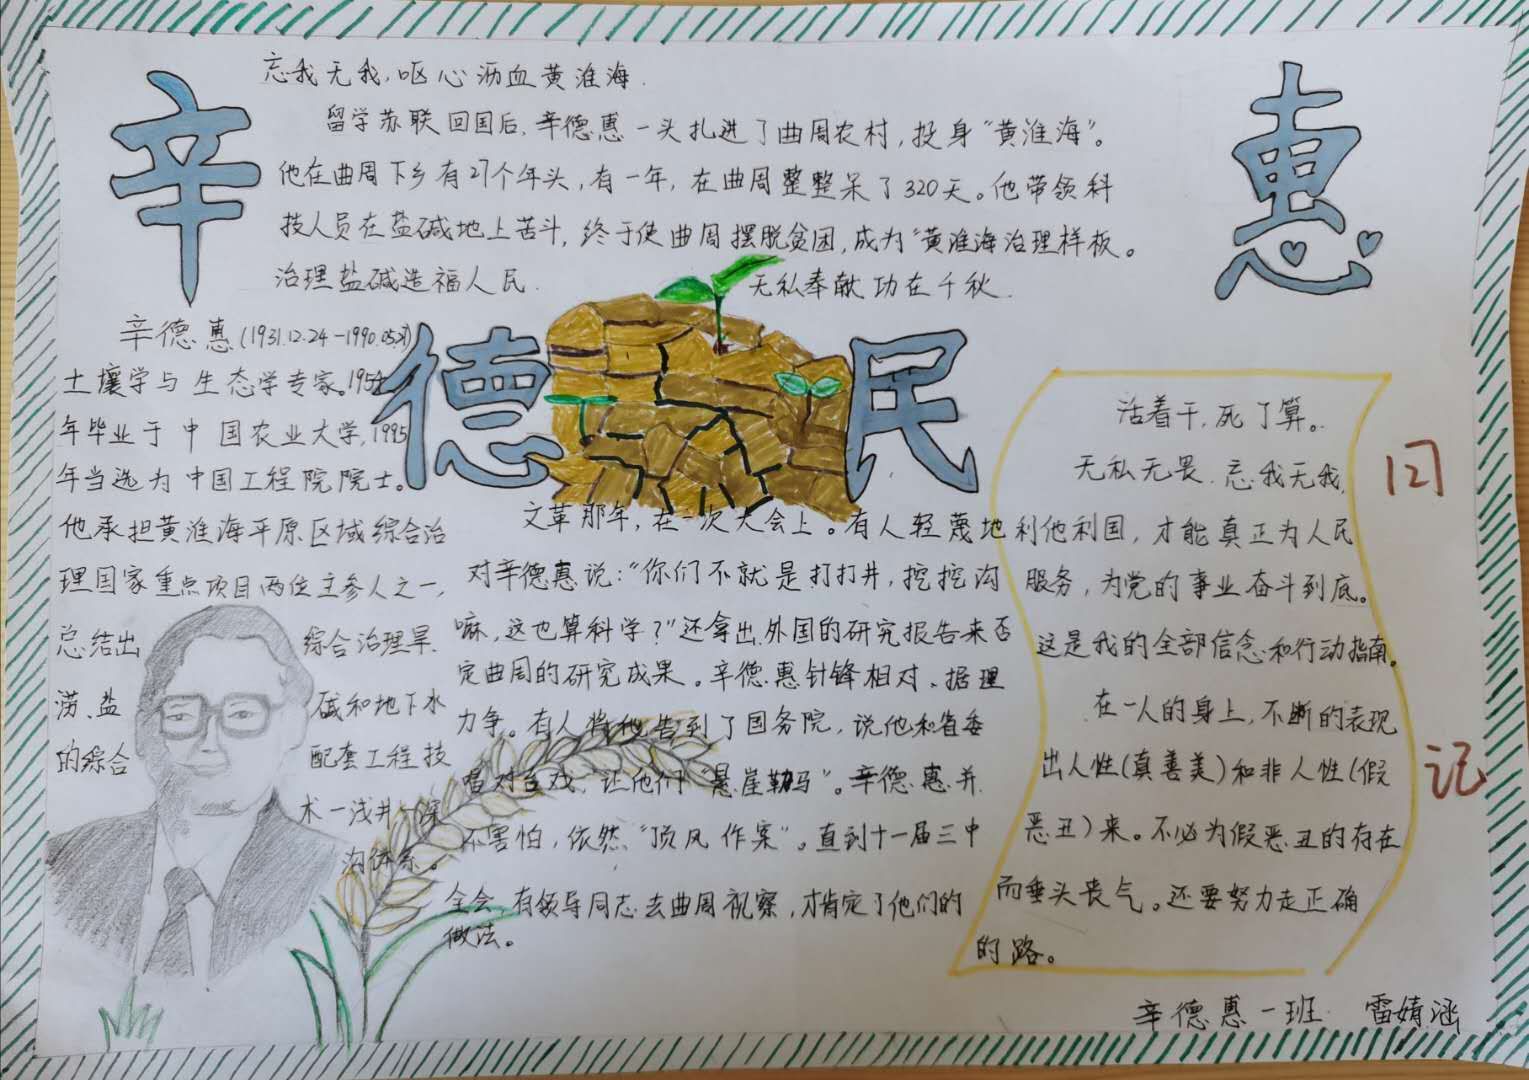 辛
德
惠
民
忘我无我,呕心沥血黄淮海.
留学苏联回国后,辛德惠一头扎进了曲周农村,投身“黄淮海”。
他在曲周下乡有27个年头,有一年,在曲周整整呆了320天。他带领科
技人员在盐碱地上苦斗,终于使曲周摆脱贫困,成为“黄淮海治理样板。
治理盐碱造福人民.
无私奉献功在千秋.
辛德惠(1931.12.24-1990.05.
土壤学与生态学专家。195
年毕业于中国农业大学,1995
年当选为中国工程院院士。
他承担黄淮海平原区域综合治
理国家重点项目两位主参人之一,
总结出 综合治理旱.
涝、盐 碱和地下水
的综合 配套工程技
术一浅井一深
沟体系。
文革那年,在一次大会上。有人轻蔑地
对辛德惠说:“你们不就是打打井,挖挖沟
嘛,这也算科学?”还拿出外国的研究报告来否
定曲周的研究成果。辛德惠针锋相对、据理
力争。有人将他告到了国务院,说他和省委
唱对台戏,让他们“悬崖勒马”。辛德惠并
不害怕,依然“顶风作案”。直到十一届三中
全会,有领导同志去曲周视察,才肯定了他们的
做法。
日记
活着干,死了算。
无私无畏.忘我无我,
利他利国,才能真正为人民
服务,为党的事业奋斗到底。
这是我的全部信念和行动指南。
在一人的身上,不断的表现
出人性(真善美)和非人性(假
恶丑)来。不必为假恶丑的存在
而垂头丧气。还要努力走正确
的路。
辛德惠一班 雷婧涵